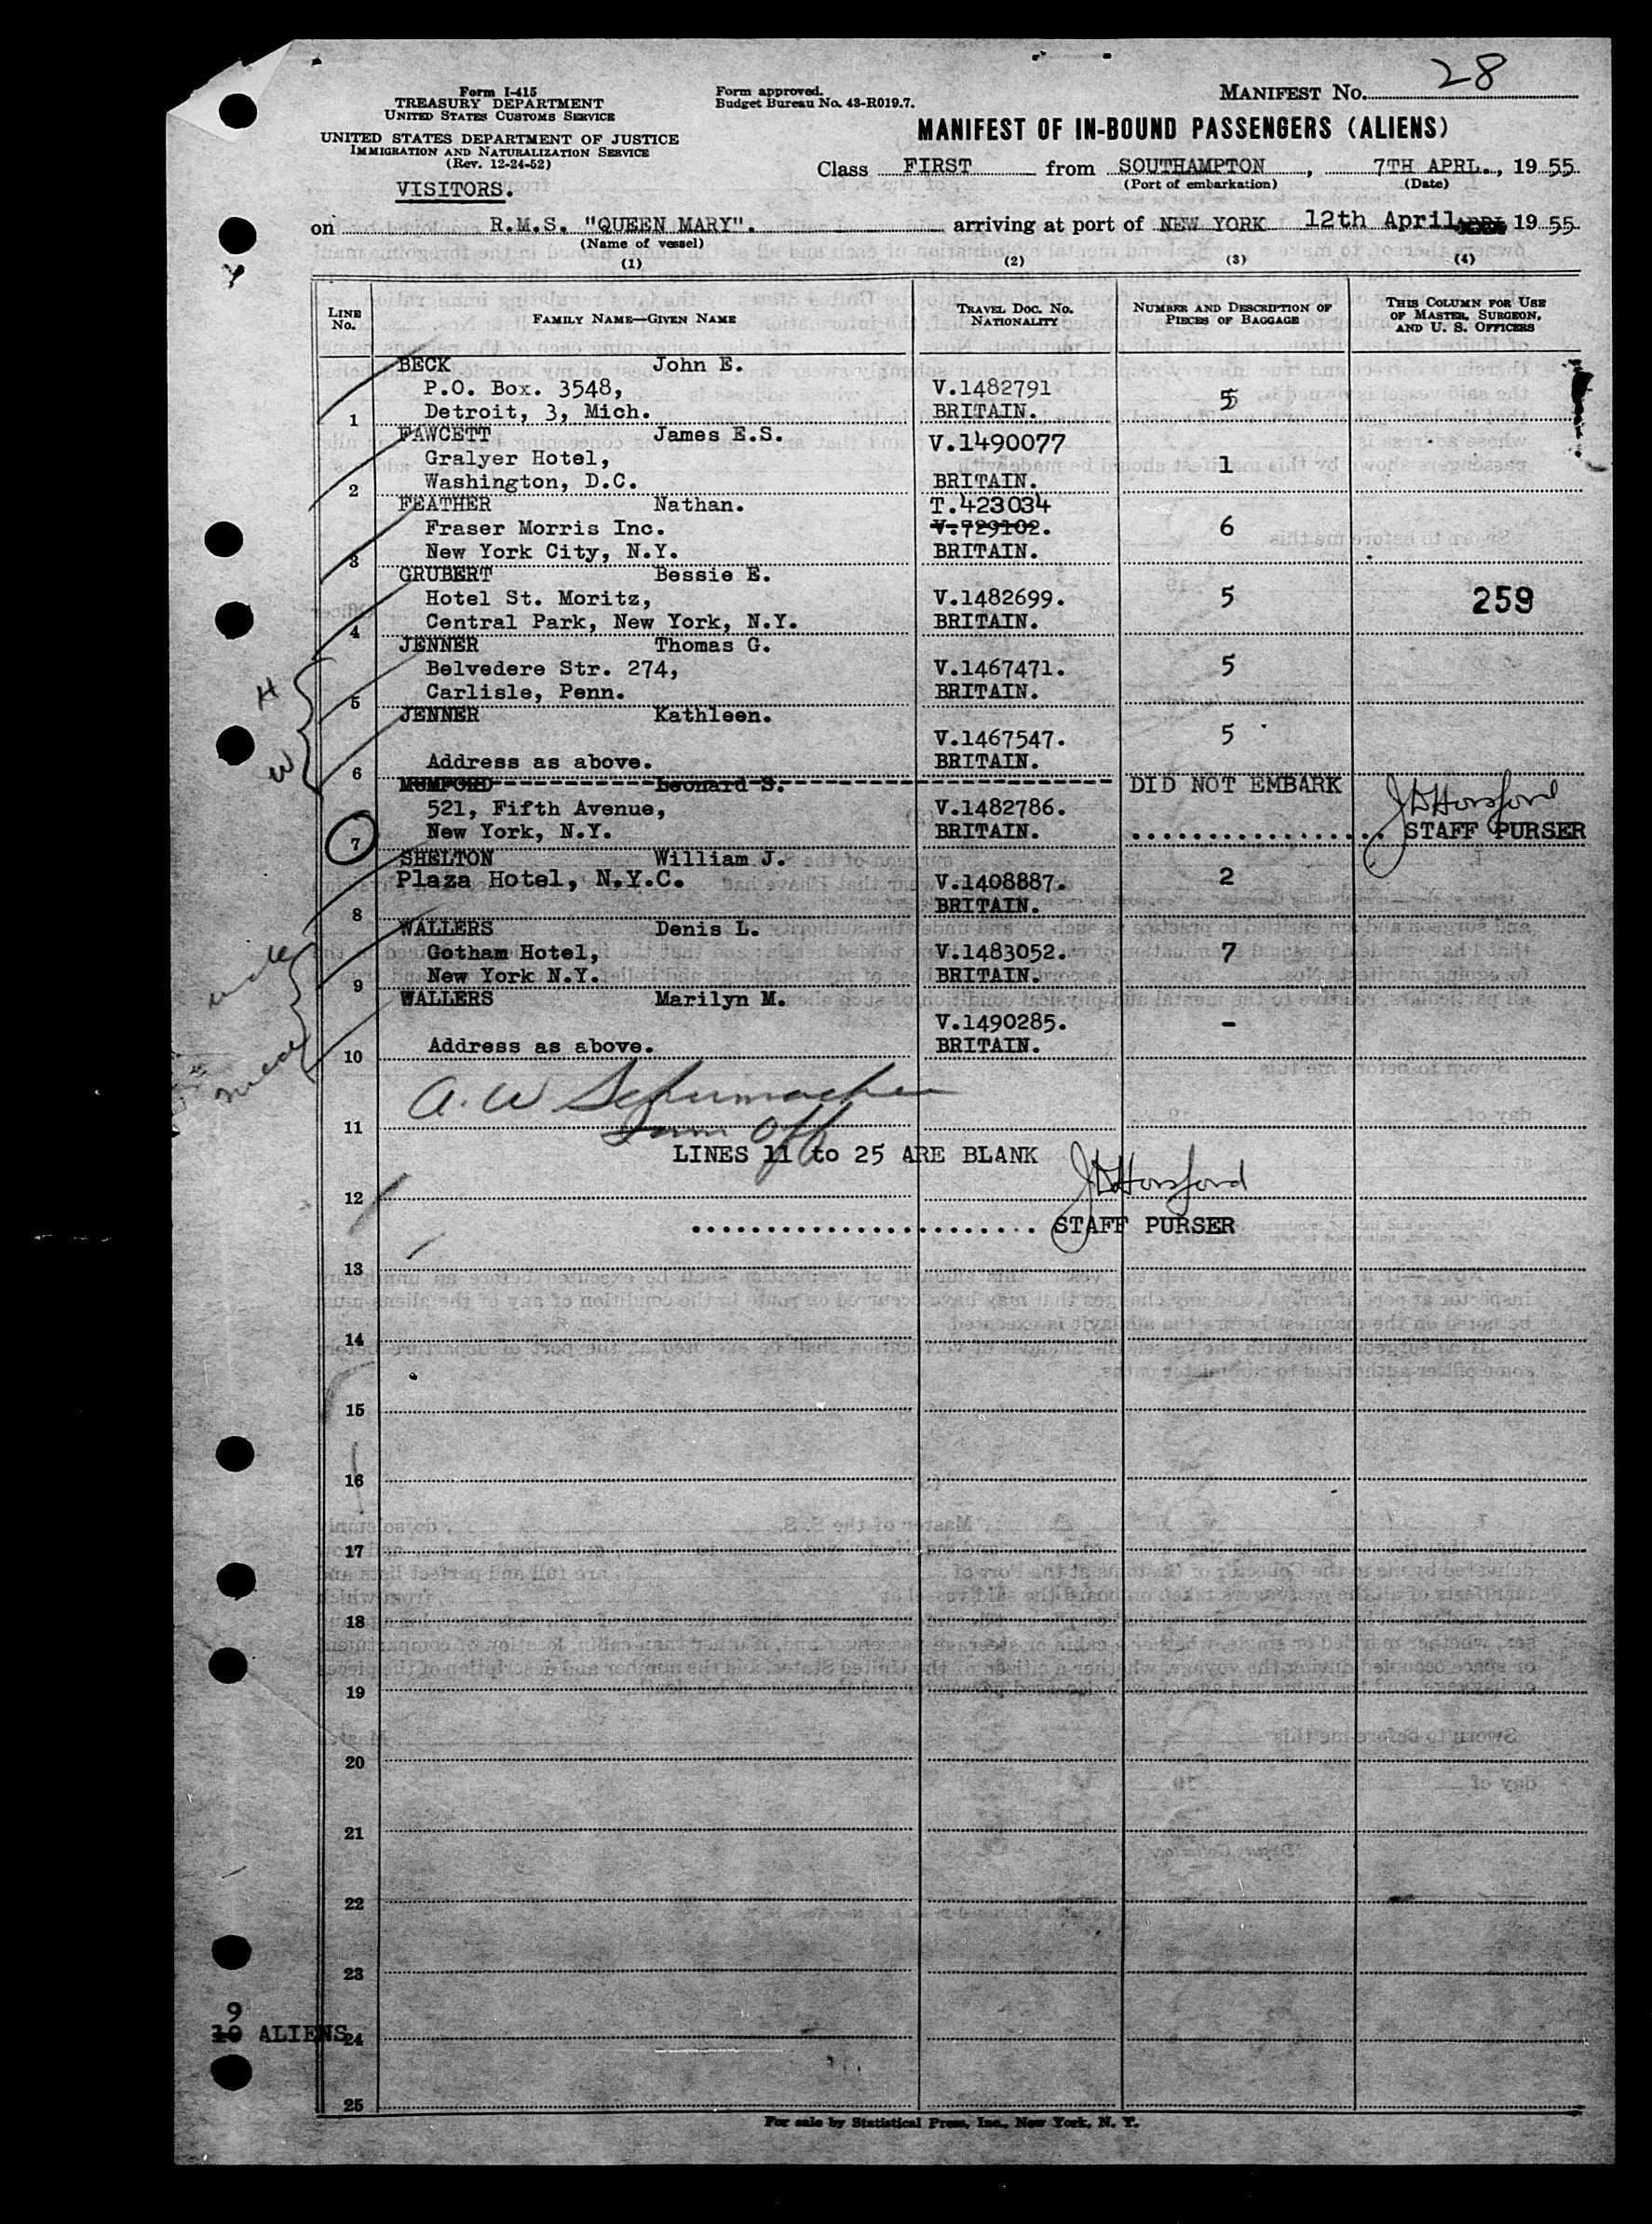 28
Form I-415
TREASURY DEPARTMENT
UNITED STATES CUSTOMS SERVICE
UNITED STATES DEPARTMENT OF JUSTICE
IMMIGRATION AND NATURALIZATION SERVICE
(Rev. 12-24-52)
VISITORS.
Form approved.
Budget Bureau No. 43-R019.7.
MANIFEST No.
MANIFEST OF IN-BOUND PASSENGERS (ALIENS)
Class FIRST from SOUTHAMPTON, 7TH APRL., 19 55
(Port of embarkation) (Date)
on R.M.S. "QUEEN MARY". arriving at port of NEW YORK 12th April 19 55
(Name of vessel)
(1) (2) (3) (4)
LINE No. FAMILY NAME—GIVEN NAME TRAVEL DOC. NO. NATIONALITY NUMBER AND DESCRIPTION OF PIECES OF BAGGAGE THIS COLUMN FOR USE OF MASTER, SURGEON, AND U. S. OFFICERS
BECK John E.
P.O. Box. 3548, V.1482791 5
1 Detroit, 3, Mich. BRITAIN.
FAWCETT James E.S. V.1490077
Gralyer Hotel, 1
2 Washington, D.C. BRITAIN.
FEATHER Nathan. T.423034
Fraser Morris Inc. V.729102. 6
3 New York City, N.Y. BRITAIN.
GRUBERT Bessie E.
Hotel St. Moritz, V.1482699. 5 259
4 Central Park, New York, N.Y. BRITAIN.
JENNER Thomas G.
H Belvedere Str. 274, V.1467471. 5
5 Carlisle, Penn. BRITAIN.
JENNER Kathleen.
V.1467547. 5
W 6 Address as above. BRITAIN.
MUMFORD Leonard S. DID NOT EMBARK JDHorsford
521, Fifth Avenue, V.1482786.
7 New York, N.Y. BRITAIN. STAFF PURSER
SHELTON William J.
Plaza Hotel, N.Y.C. V.1408887. 2
8 BRITAIN.
WALLERS Denis L.
uncle Gotham Hotel, V.1483052. 7
9 New York N.Y. BRITAIN.
WALLERS Marilyn M.
V.1490285. -
niece 10 Address as above. BRITAIN.
A. W Schumacher
11 Imm Off
LINES 11 to 25 ARE BLANK JDHorsford
12
STAFF PURSER
13
14
15
16
17
18
19
20
21
22
23
9
10 ALIENS 24
25
For sale by Statistical Press, Inc., New York, N. Y.